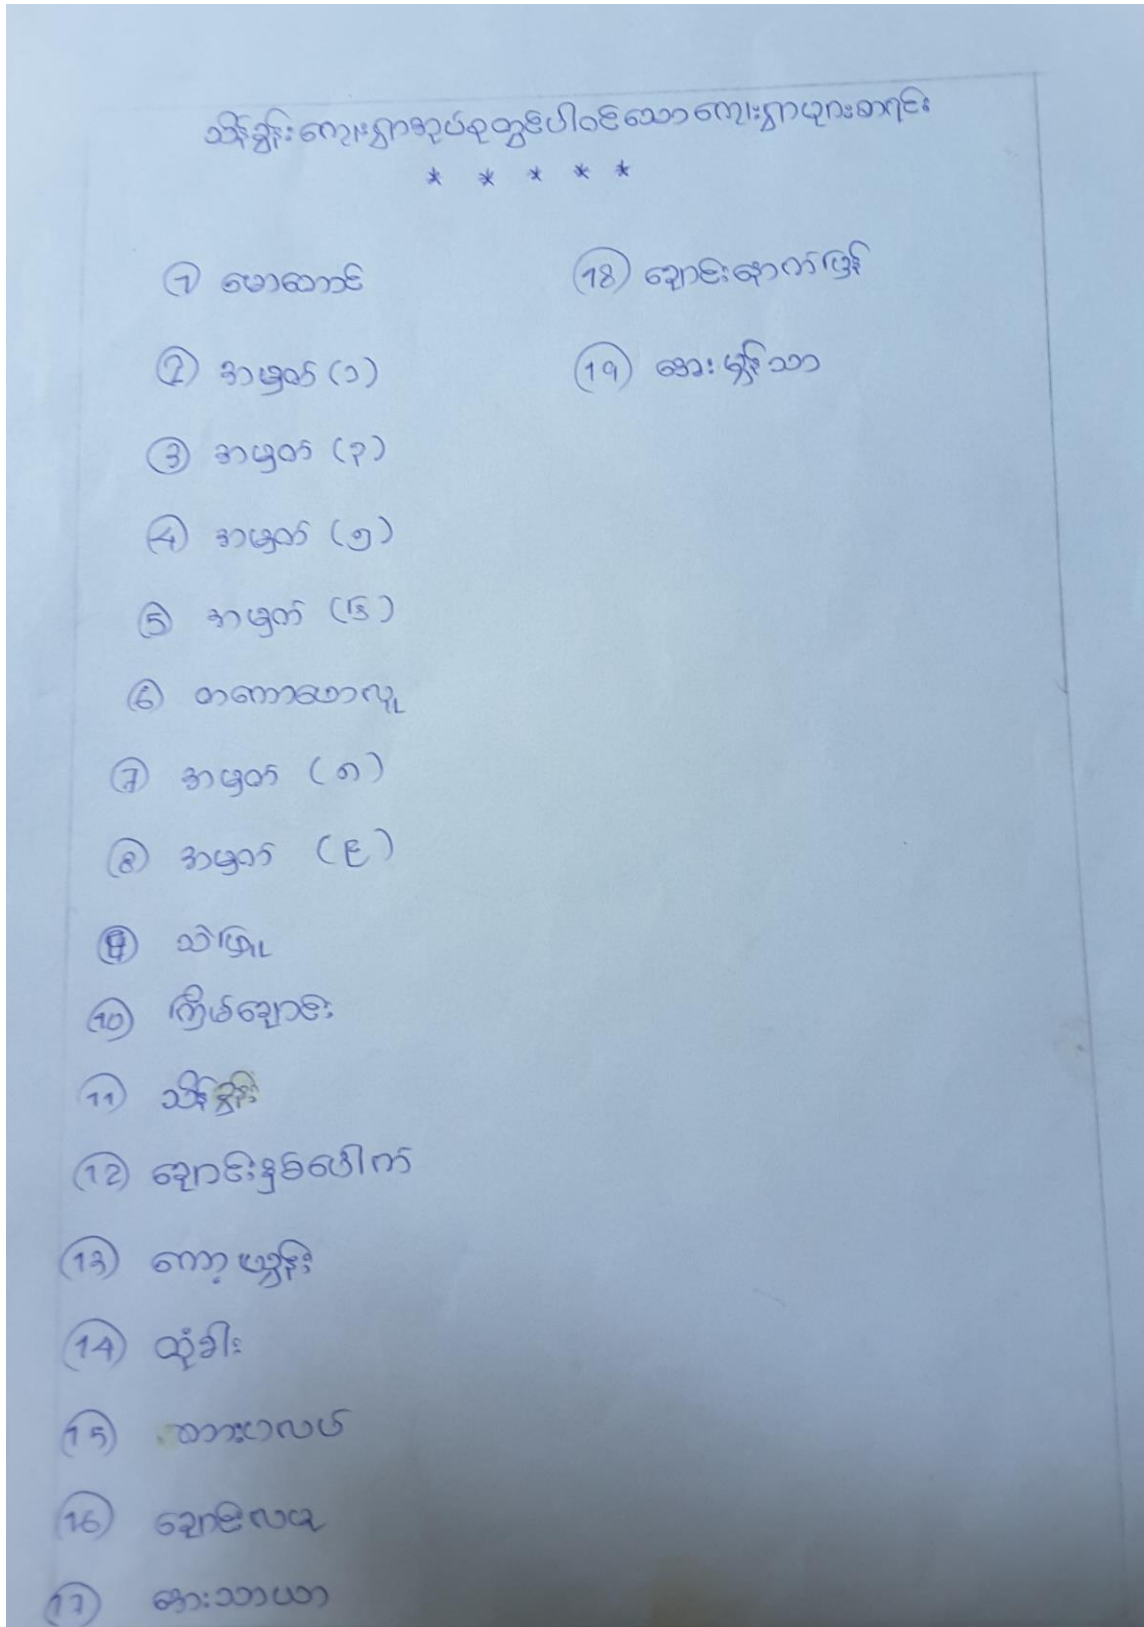 သိန်ခွန်းကျေးရွာအုပ်စုတွင်ပါဝင်သောကျေးရွာများစာရင်း
* * * * *
1 မောတောင်
2 အမှတ် (၁)
3 အမှတ် (၃)
4 အမှတ် (၅)
5 အမှတ် (၆)
6 တကောဖောလူ
7 အမှတ် (၈)
8 အမှတ် (၉)
9 သဲဖြူ
10 ကြိမ်ချောင်း
11 သိန်ခွန်း
12 ချောင်းနှစ်ပေါက်
13 ကော့ယွန်း
14 ထုံခါး
15 ထားပလယ်
16 ချောင်လယ
17 အေးသာယာ
18 ချောင်းနောက်ပြန်
19 အေးမွန်သာ